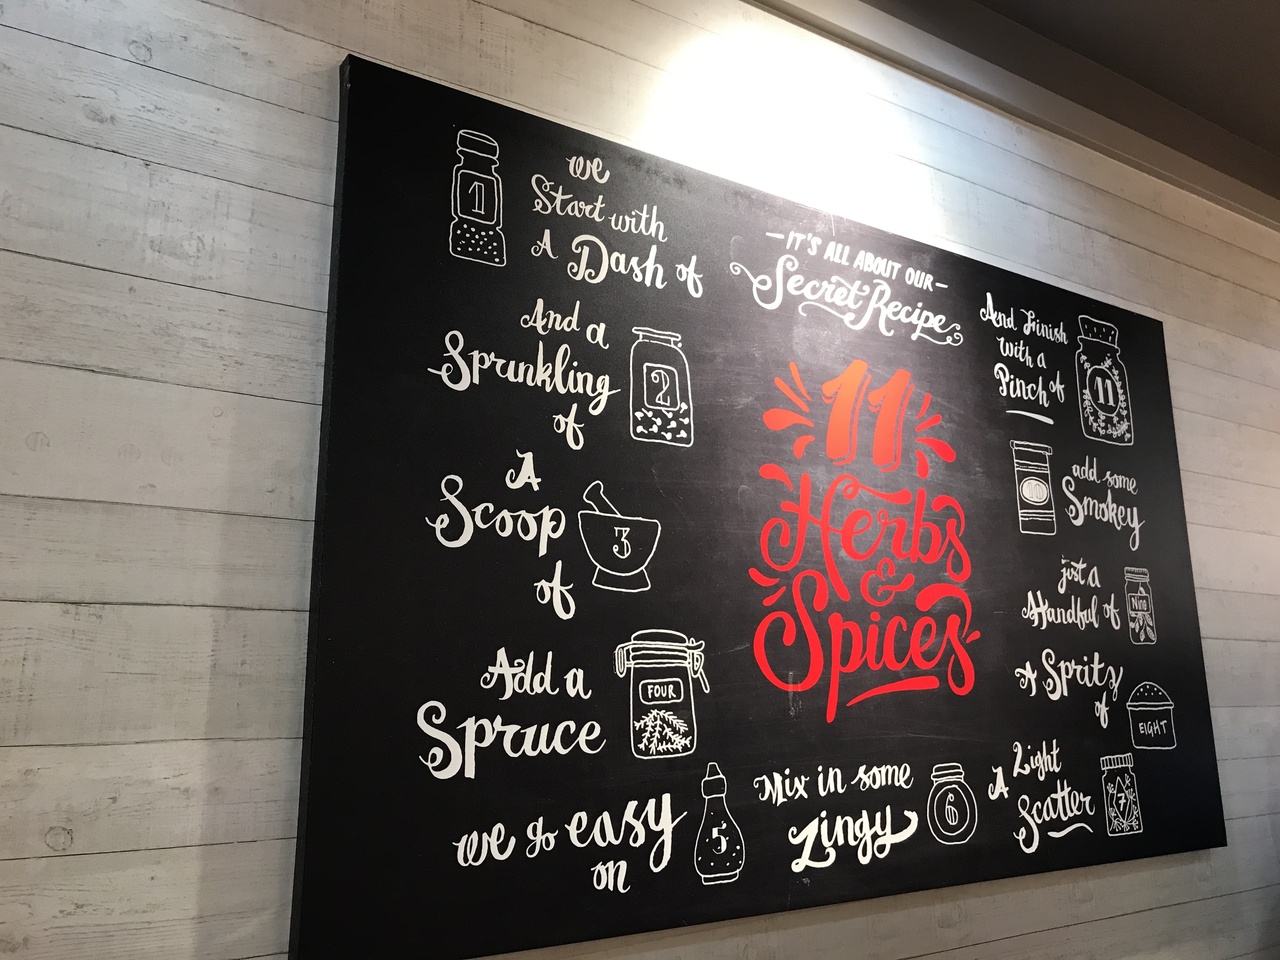 IT'S ALL ABOUT OUR
Secret Recipe
11
Herbs
&
Spices
we
Start with
A Dash of
1
And a
Sprinkling
of
2
A
Scoop
of
3
Add a
Spruce
FOUR
we go easy
on
5
Mix in some
Zingy
6
A Light
Scatter
7
A Spritz
of
EIGHT
just a
Handful of
Nine
add some
Smokey
10
And Finish
with a
Pinch of
11